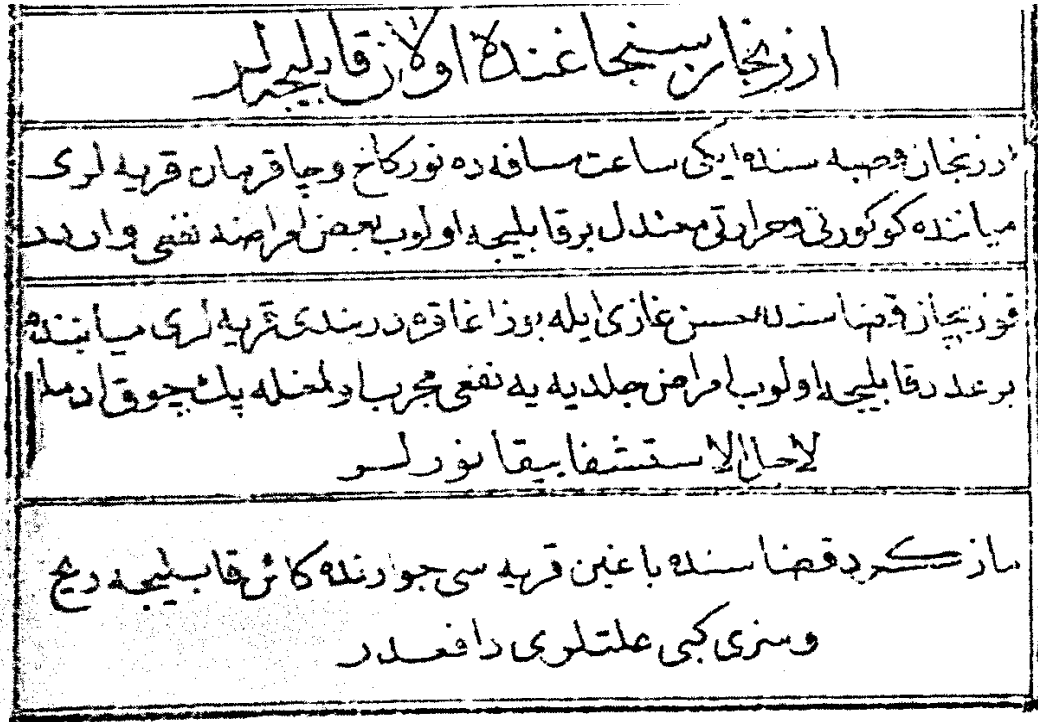 ارزنجان سنجاغنده اولان قابليجه لر
ارزنجان قصبه سنده ايكى ساعت مسافه ده نوركاخ وچاقرمان قريه لرى
مياننده كوكورتى وحرارتى معتدل برقابليجه اولوب بعض امراضه نفعى واردر
قوزيچان قضاسنده حسن غازى ايله بوزاغا قره دربندى قريه لرى مياننده
برعدد قابليجه اولوب امراض جلديه يه نفعى مجرب اولمغله پك چوق ادملر
لاجل الاستشفا ييقانورلر
مازكرد قضاسنده باغين قريه سى جوارنده كائن قابليجه ريح
وسزى كبى علتلرى دافعدر